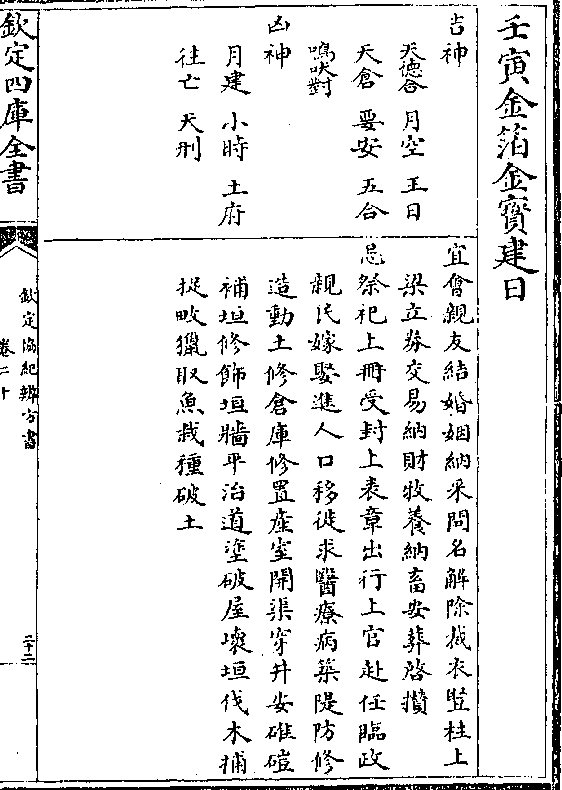 壬寅金箔金寶建日
吉神
天德合 月空 王日
天倉 要安 五合
鳴吠對
凶神
月建 小時 土府
往亡 天刑
宜會親友結婚姻納采問名解除裁衣豎柱上
梁立劵交易納財牧養納畜安葬啓攢
忌祭祀上冊受封上表章出行上官赴任臨政
親民嫁娶進人口移徙求醫療病築隄防修
造動土修倉庫修置産室開渠穿井安碓磑
補垣修飾垣牆平治道塗破屋壞垣伐木捕
捉畋獵取魚栽種破土
欽定四庫全書
欽定協紀辨方書
卷二十
二十二